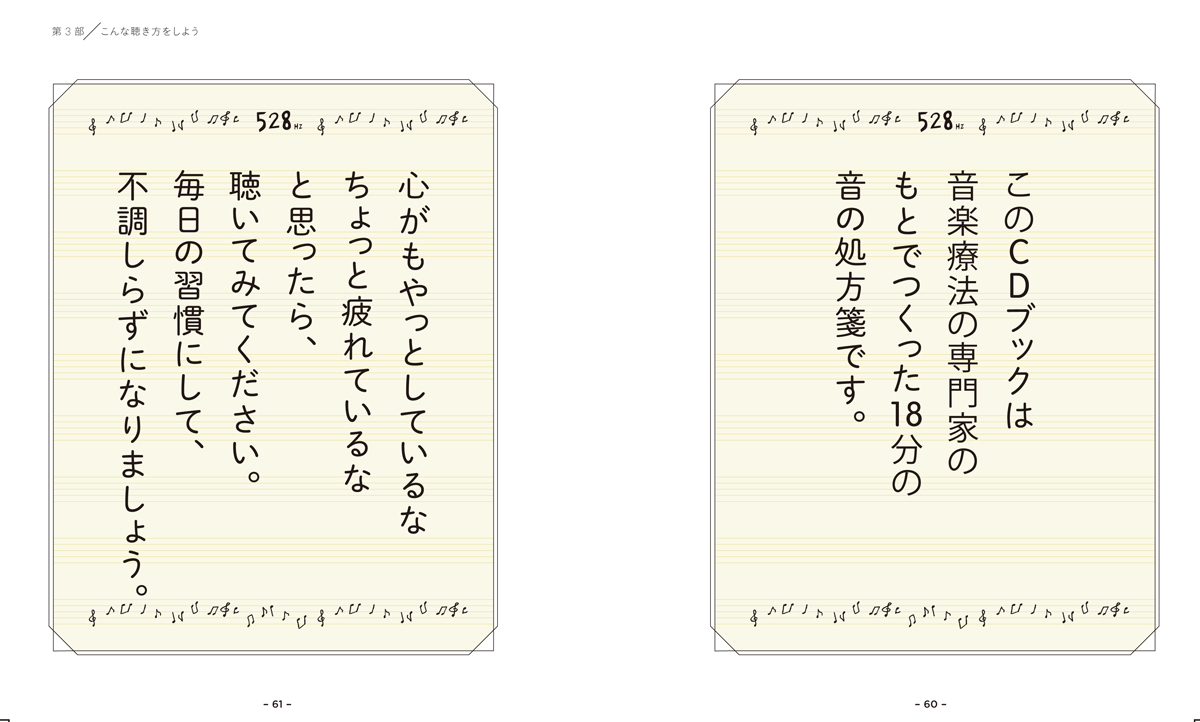 第3部／こんな聴き方をしよう
528Hz
このCDブックは
音楽療法の専門家の
もとでつくった18分の
音の処方箋です。
– 60 –
528Hz
心がもやっとしているな
ちょっと疲れているな
と思ったら、
聴いてみてください。
毎日の習慣にして、
不調しらずになりましょう。
– 61 –